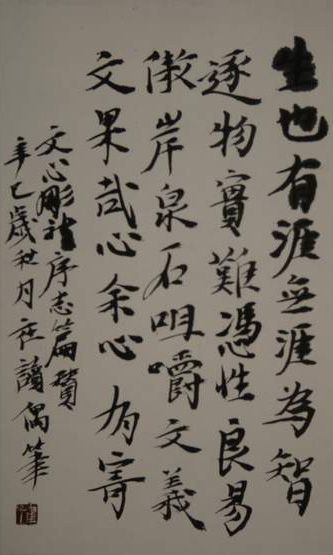 生也有涯無涯為智
逐物實難憑性良易
傲岸泉石咀嚼文義
文果哉心余心有寄
文心彫龍序志篇贊
辛巳歲秋月讀偶筆